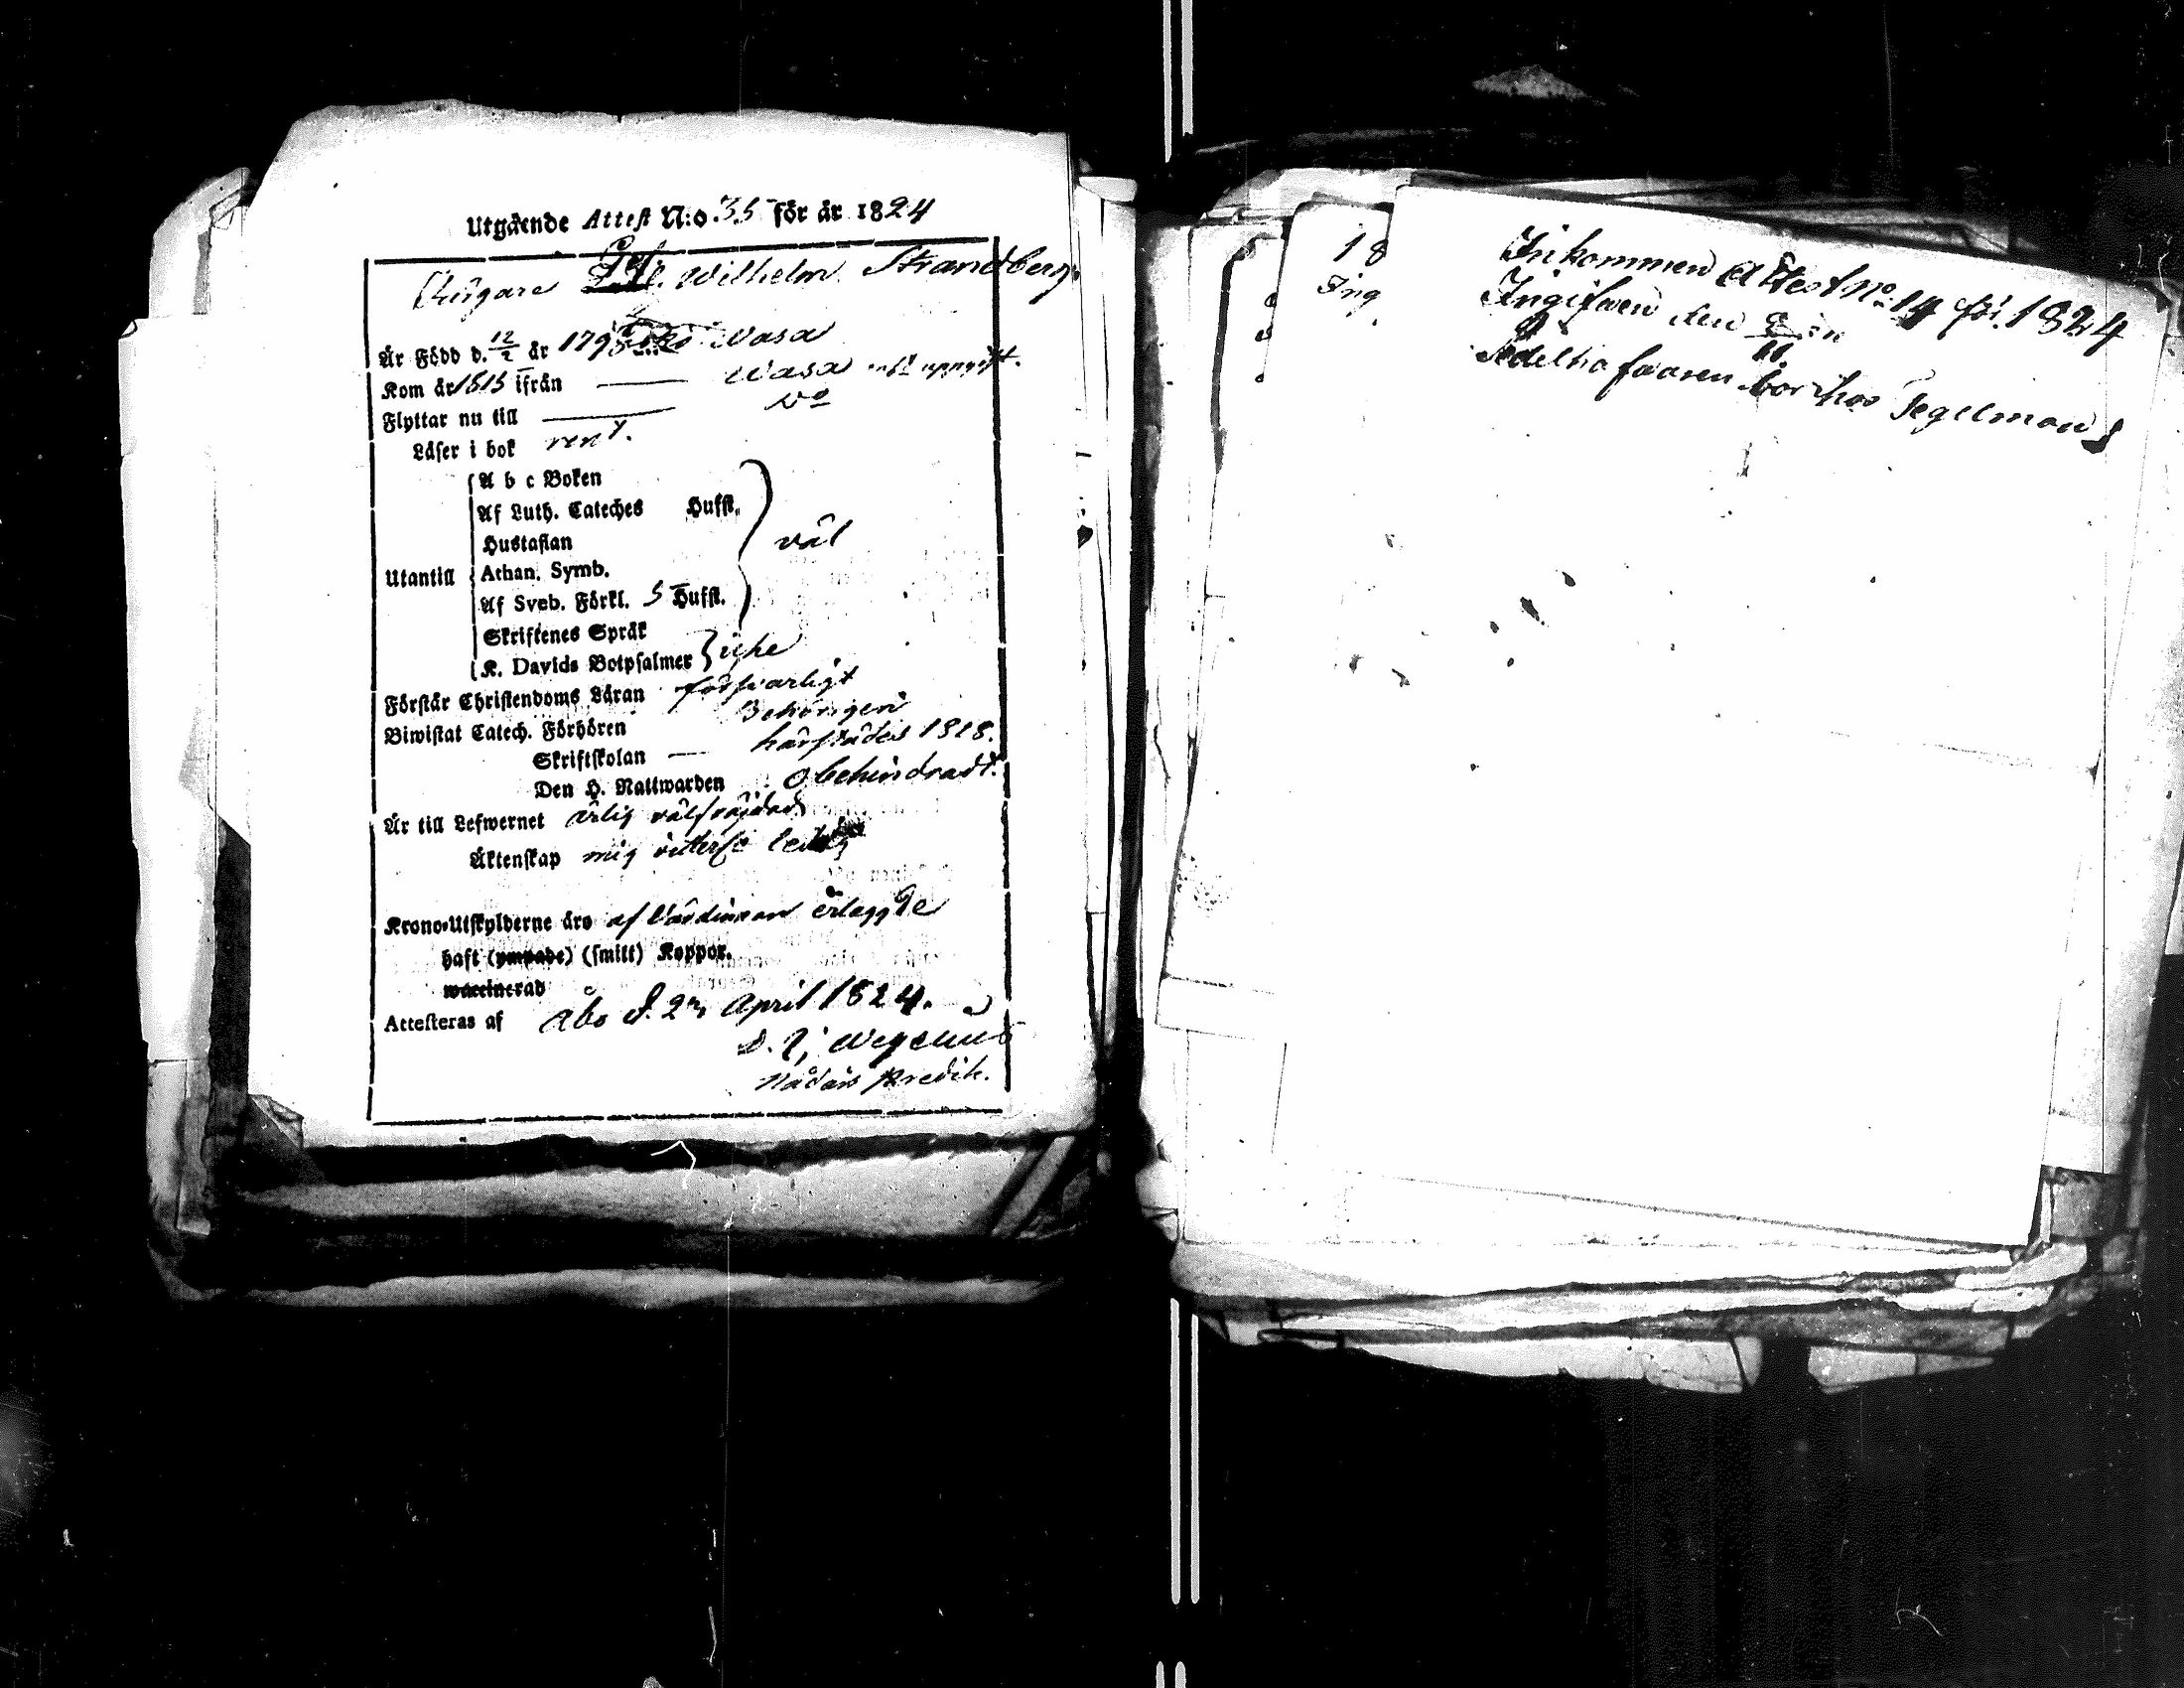 Utgående Attest N:o 35 för år 1824
Wilhelm Strandberg
Är Född d. 12/2 år 179 Wasa
Kom år 1815 ifrån — Wasa
Flyttar nu till — Do
Läser i bok rent.
A b c Boken
Af Luth. Cateches Hufst.
Hustaflan
Utantill Athan. Symb. väl
Af Sveb. Förkl. 5 Hufst.
Skriftenes Språk
K. Davids Botpsalmer icke
Förstår Christendoms Läran försvarligt
Biwistat Catech. Förhören behörigen
Skriftskolan — härstädes 1818.
Den H. Nattwarden obehindradt.
Är till Lefwernet ärlig välfräjdad
Äktenskap mig veterl. ledig
Krono-Utskylderne äro af Värdinnan erlaggde
haft (ympade) (smitt) Koppor.
waccinerad
Attesteras af Åbo d. 23 April 1824.
D. J. Wegelius
Nådårs predik.
18
Ing
Inkommen Attest No 14 för 1824
Ingifven den
bor hos Tegelman